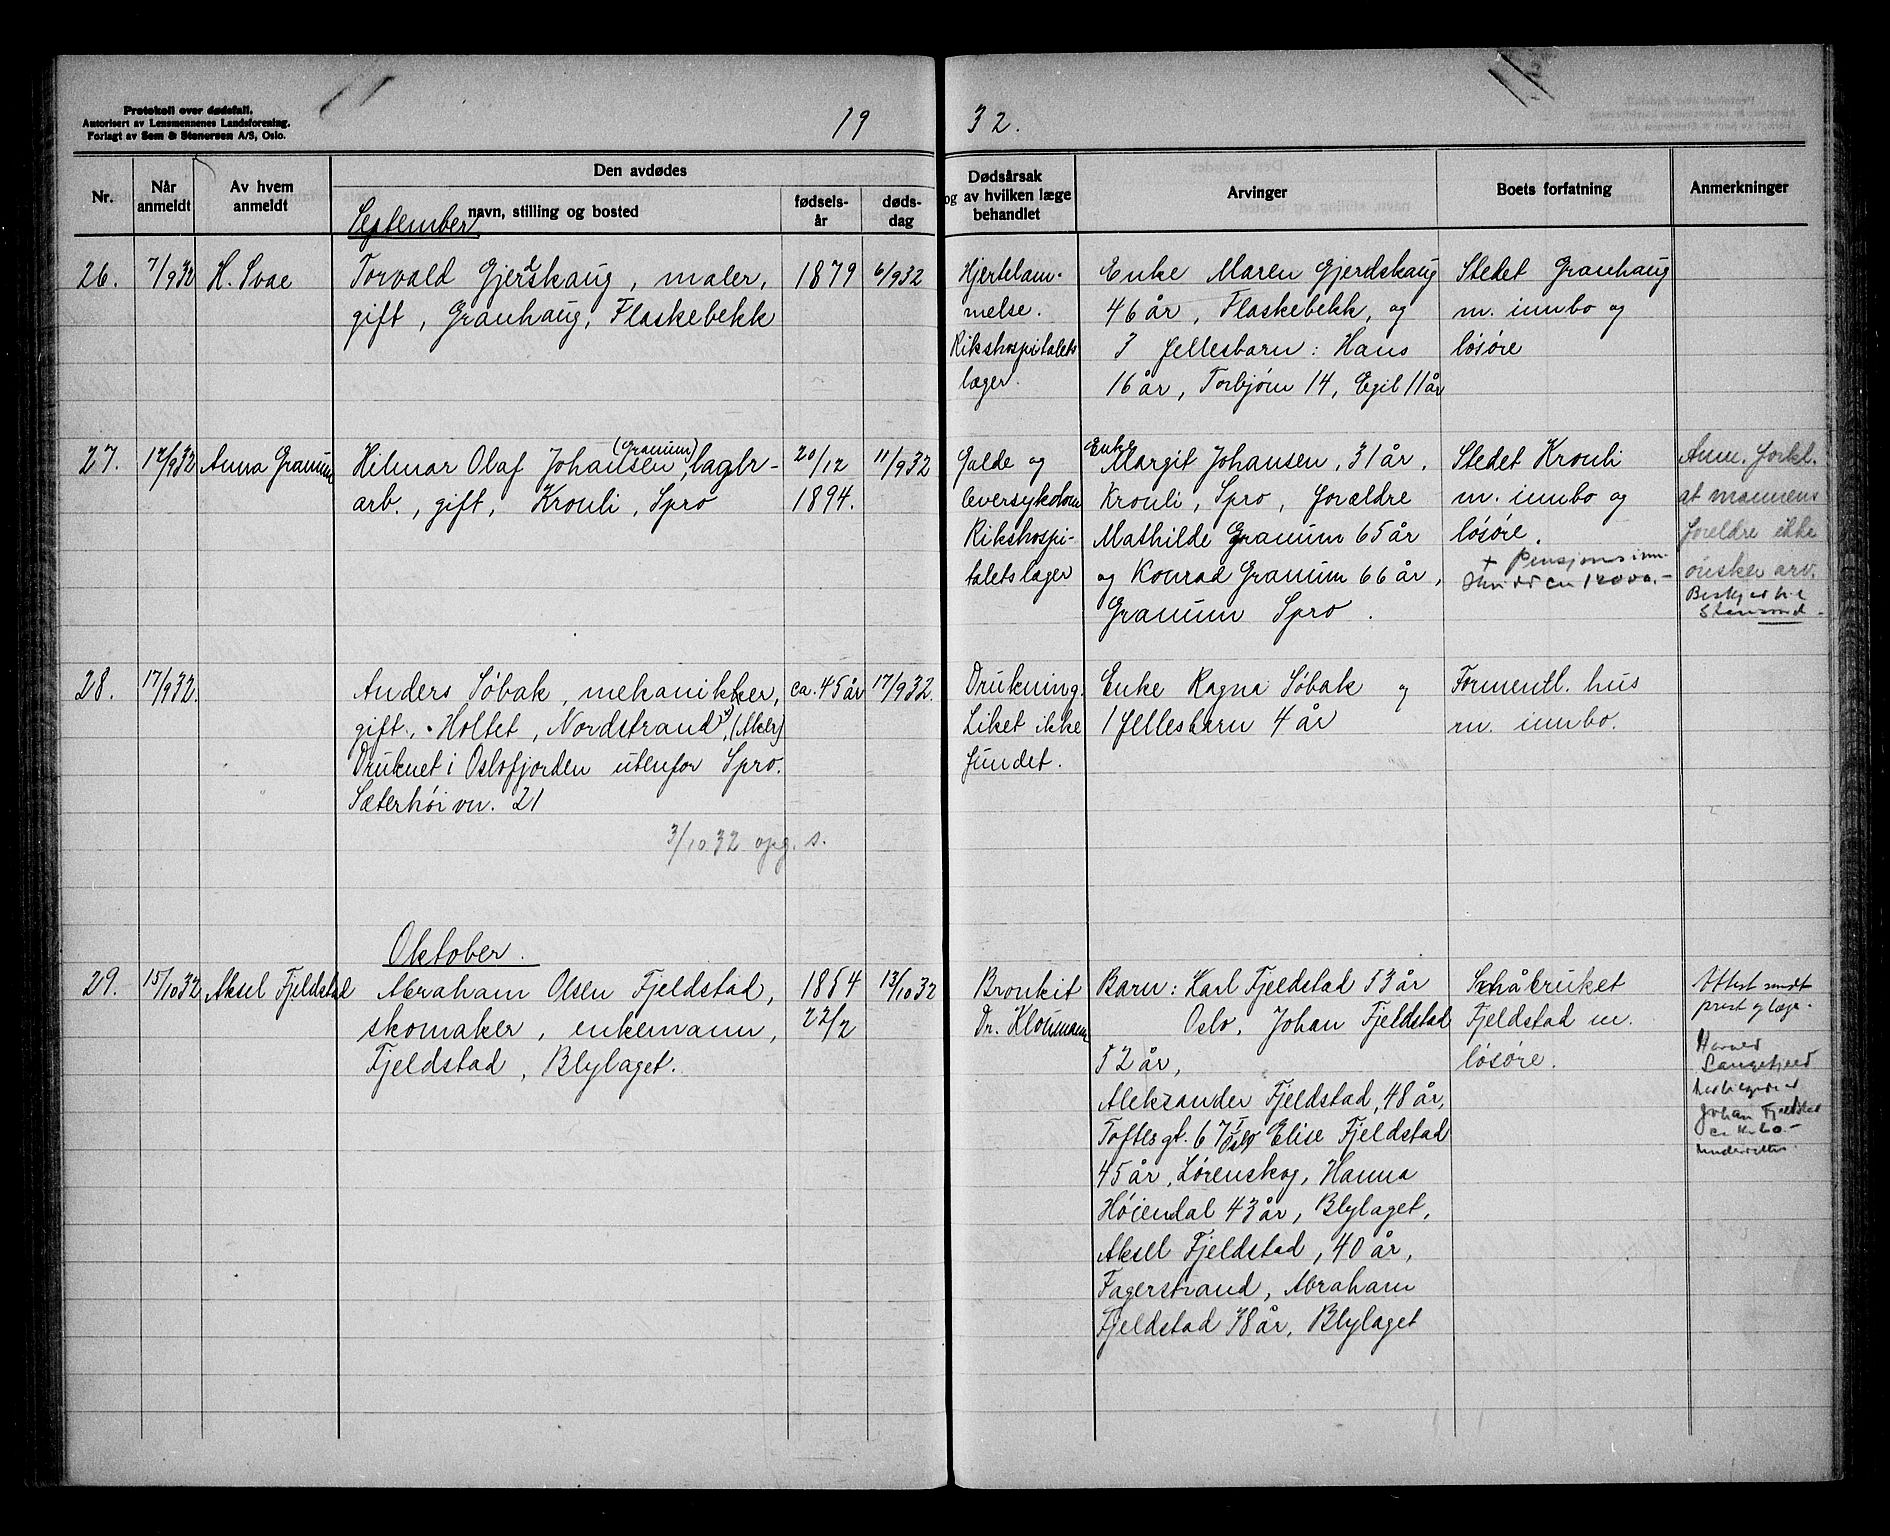 Protokoll over dødsfall.
Autorisert av Lensmennenes Landsforening.
Forlagt av Sem & Stenersen A/S, Oslo.
19 32.
Nr.
Når anmeldt
Av hvem anmeldt
Den avdødes
navn, stilling og bosted
fødselsår
dødsdag
Dødsårsak
og av hvilken læge
behandlet
Arvinger
Boets forfatning
Anmerkninger
September
26.
7/9 32
H. Svae
Torvald Gjerdskaug, maler,
gift, Granhaug, Flaskebekk
1879
6/9 32
Hjertelam-
melse.
Rikshospitalets
læger.
Enke Maren Gjerdskaug
46 år, Flaskebekk, og
3 fellesbarn: Hans
16 år, Torbjørn 14, Egil 11 år
Stedet Granhaug
m. innbo og
løsøre
27.
12/9 32
Anna Granum
Hilmar Olaf Johansen (Granum), lager-
arb., gift, Kronli, Spro
20/12
1894.
11/9 32
Galde og
leversykdom
Rikshospi-
talets læger
Enke
Margit Johansen, 31 år,
Kronli, Spro, forældre
Mathilde Granum 65 år
og Konrad Granum 66 år,
Granum Spro.
Stedet Kronli
m. innbo og
løsøre.
+ Pensjonsinn-
skudd ca 12000.-
Anm. forkl.
at mannens
foreldre ikke
ønsker arv.
Beskjed til
28.
17/9 32.
Anders Søbak, mekanikker,
gift, Holtet, Nordstrand, (Aker)
Druknet i Oslofjorden utenfor Spro.
Sæterhøivn. 21
3/10 32 opg. s.
ca. 45 år
17/9 32.
Drukning.
Liket ikke
fundet.
Enke Ragna Søbak og
1 fellesbarn 4 år
Formentl. hus
m. innbo.
Oktober.
29.
15/10 32
Aksel Fjeldstad
Abraham Olsen Fjeldstad,
skomaker, enkemann,
Fjeldstad, Blylaget.
1854
22/2
13/10 32
Bronkit
Dr. Kloumann
Barn: Karl Fjeldstad 53 år
Oslo, Johan Fjeldstad
52 år,
Aleksander Fjeldstad, 48 år,
Toftes gt. 67 I Oslo Elise Fjeldstad
45 år, Lørenskog, Hanna
Høiendal 43 år, Blylaget,
Aksel Fjeldstad, 40 år,
Fagerstrand, Abraham
Fjeldstad 38 år, Blylaget
Småbruket
Fjeldstad m.
løsøre.
Attest sendt
prest og læge.
Harald
Langefjeld
Johan Fjeldstad
underrettes.